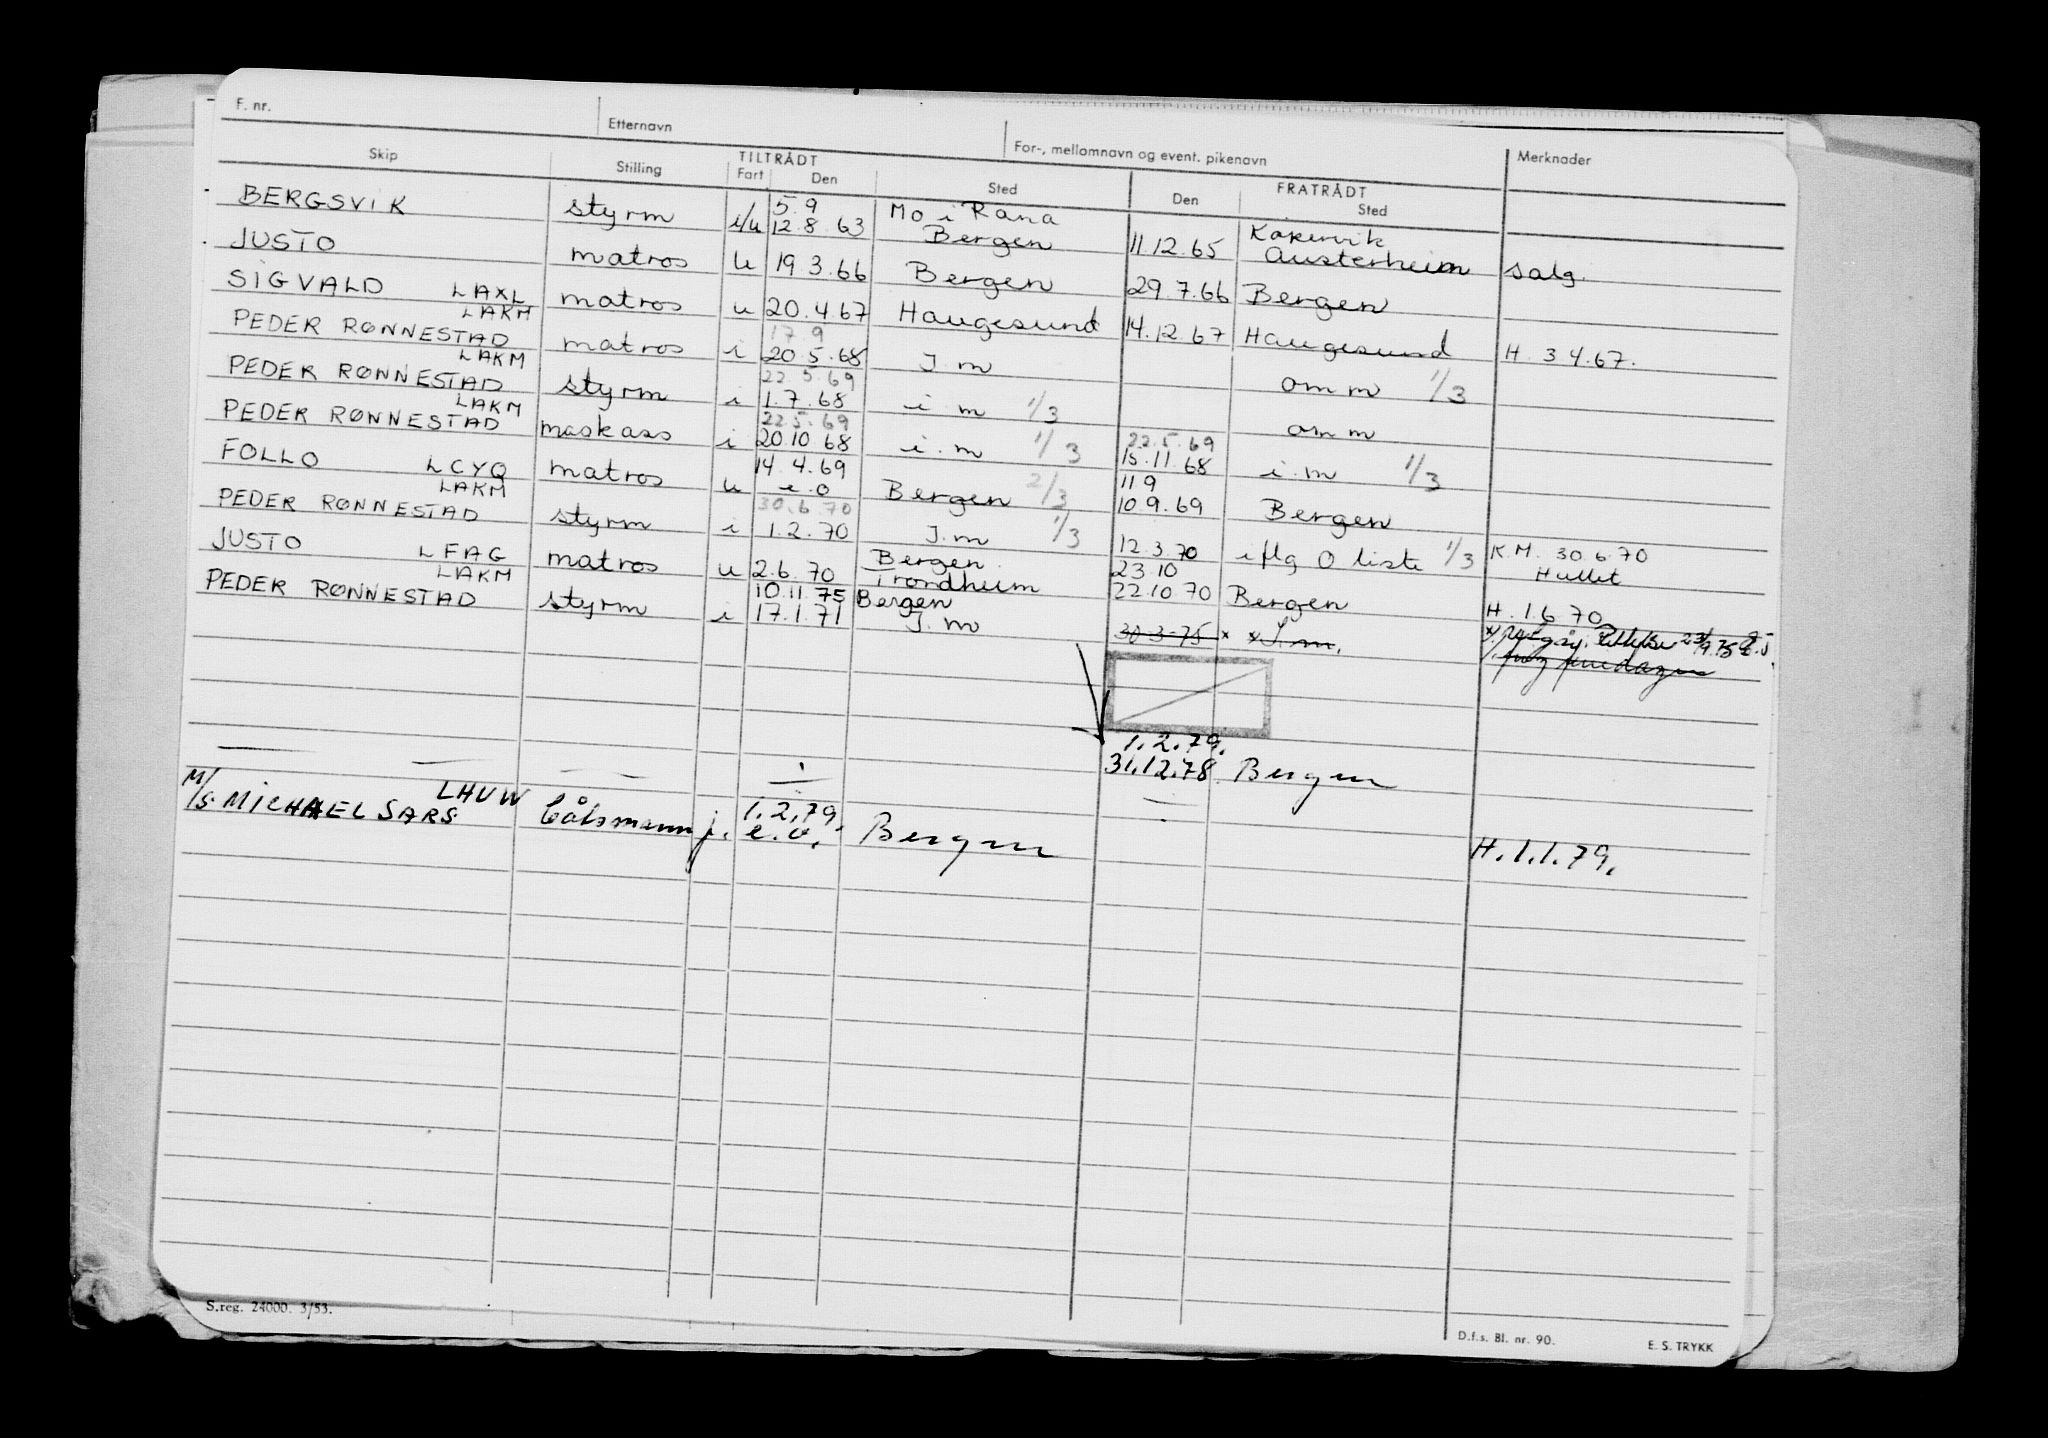 F. nr. Etternavn For-, mellomnavn og event. pikenavn Merknader
Skip Stilling TILTRÅDT Fart Den Sted FRATRÅDT Den Sted
5.9 Mo i Rana Kakervik
BERGSVIK styrm i/u 12.8.63 Bergen 11.12.65 Austerheim salg.
JUSTO matros u 19.3.66 Bergen 29.7.66 Bergen
SIGVALD LAXL matros u 20.4.67 Haugesund 14.12.67 Haugesund H. 3 4.67.
LAKM 17.9
PEDER RØNNESTAD matros i 20.5.68 J.m om m 1/3
LAKM 22.5.69
PEDER RØNNESTAD styrm i 1.7.68 i m 1/3 om m
LAKM 22.5.69 22.5.69
PEDER RØNNESTAD maskass i 20.10 68 i.m 1/3 15.11.68 i.m 1/3
14.4.69 11 9
FOLLO LCYQ matros u e.o Bergen 2/3 10.9.69 Bergen
LAKM 30.6.70
PEDER RØNNESTAD styrm i 1.2.70 J.m 1/3 12.3.70 iflg O liste 1/3 K.M. 30.6.70
Bergen 23.10 Hullet
JUSTO LFAG matros u 2.6.70 Trondheim 22.10.70 Bergen H. 1.6 70
LAKM 10.11.75 Bergen
PEDER RØNNESTAD styrm i 17.1.71 J.m 30.3.75 x x J.m.
1.2.79.
31.12.78 Bergen
LHUW 1.2.79.
M/S. MICHAEL SARS båtsmann j. e.o. Bergen H. 1.1.79.
S.reg. 24000. 3/53.
D.f.s. Bl. nr. 90. E. S. TRYKK